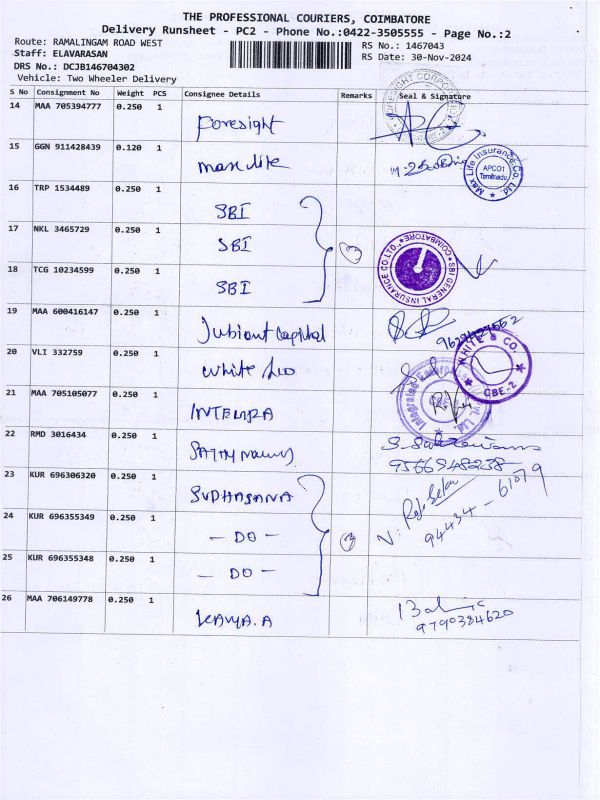 THE PROFESSIONAL COURIERS, COIMBATORE
Delivery Runsheet - PC2 - Phone No.:0422-3505555 - Page No.:2
Route: RAMALINGAM ROAD WEST RS No.: 1467043
Staff: ELAVARASAN RS Date: 30-Nov-2024
DRS No.: DCJB146704302
Vehicle: Two Wheeler Delivery
S No Consignment No Weight PCS Consignee Details Remarks Seal & Signature
14 MAA 705394777 0.250 1 Foresight
15 GGN 911428439 0.120 1 max life Max Life Insurance Co. Ltd. APCO1 Tamilnadu
16 TRP 1534489 0.250 1 SBI
17 NKL 3465729 0.250 1 SBI 3 SBI GENERAL INSURANCE CO.LTD., COIMBATORE
18 TCG 10234599 0.250 1 SBI
19 MAA 600416147 0.250 1 Jubiant Capital
20 VLI 332759 0.250 1 White WHITE & CO. CBE-2
21 MAA 705105077 0.250 1 Integrated
22 RMD 3016434 0.250 1 9566948238
23 KUR 696306320 0.250 1 SUDHASANA
24 KUR 696355349 0.250 1 - DO - 3 94434 - 61079
25 KUR 696355348 0.250 1 - DO -
26 MAA 706149778 0.250 1 KAVYA.A 9790384620